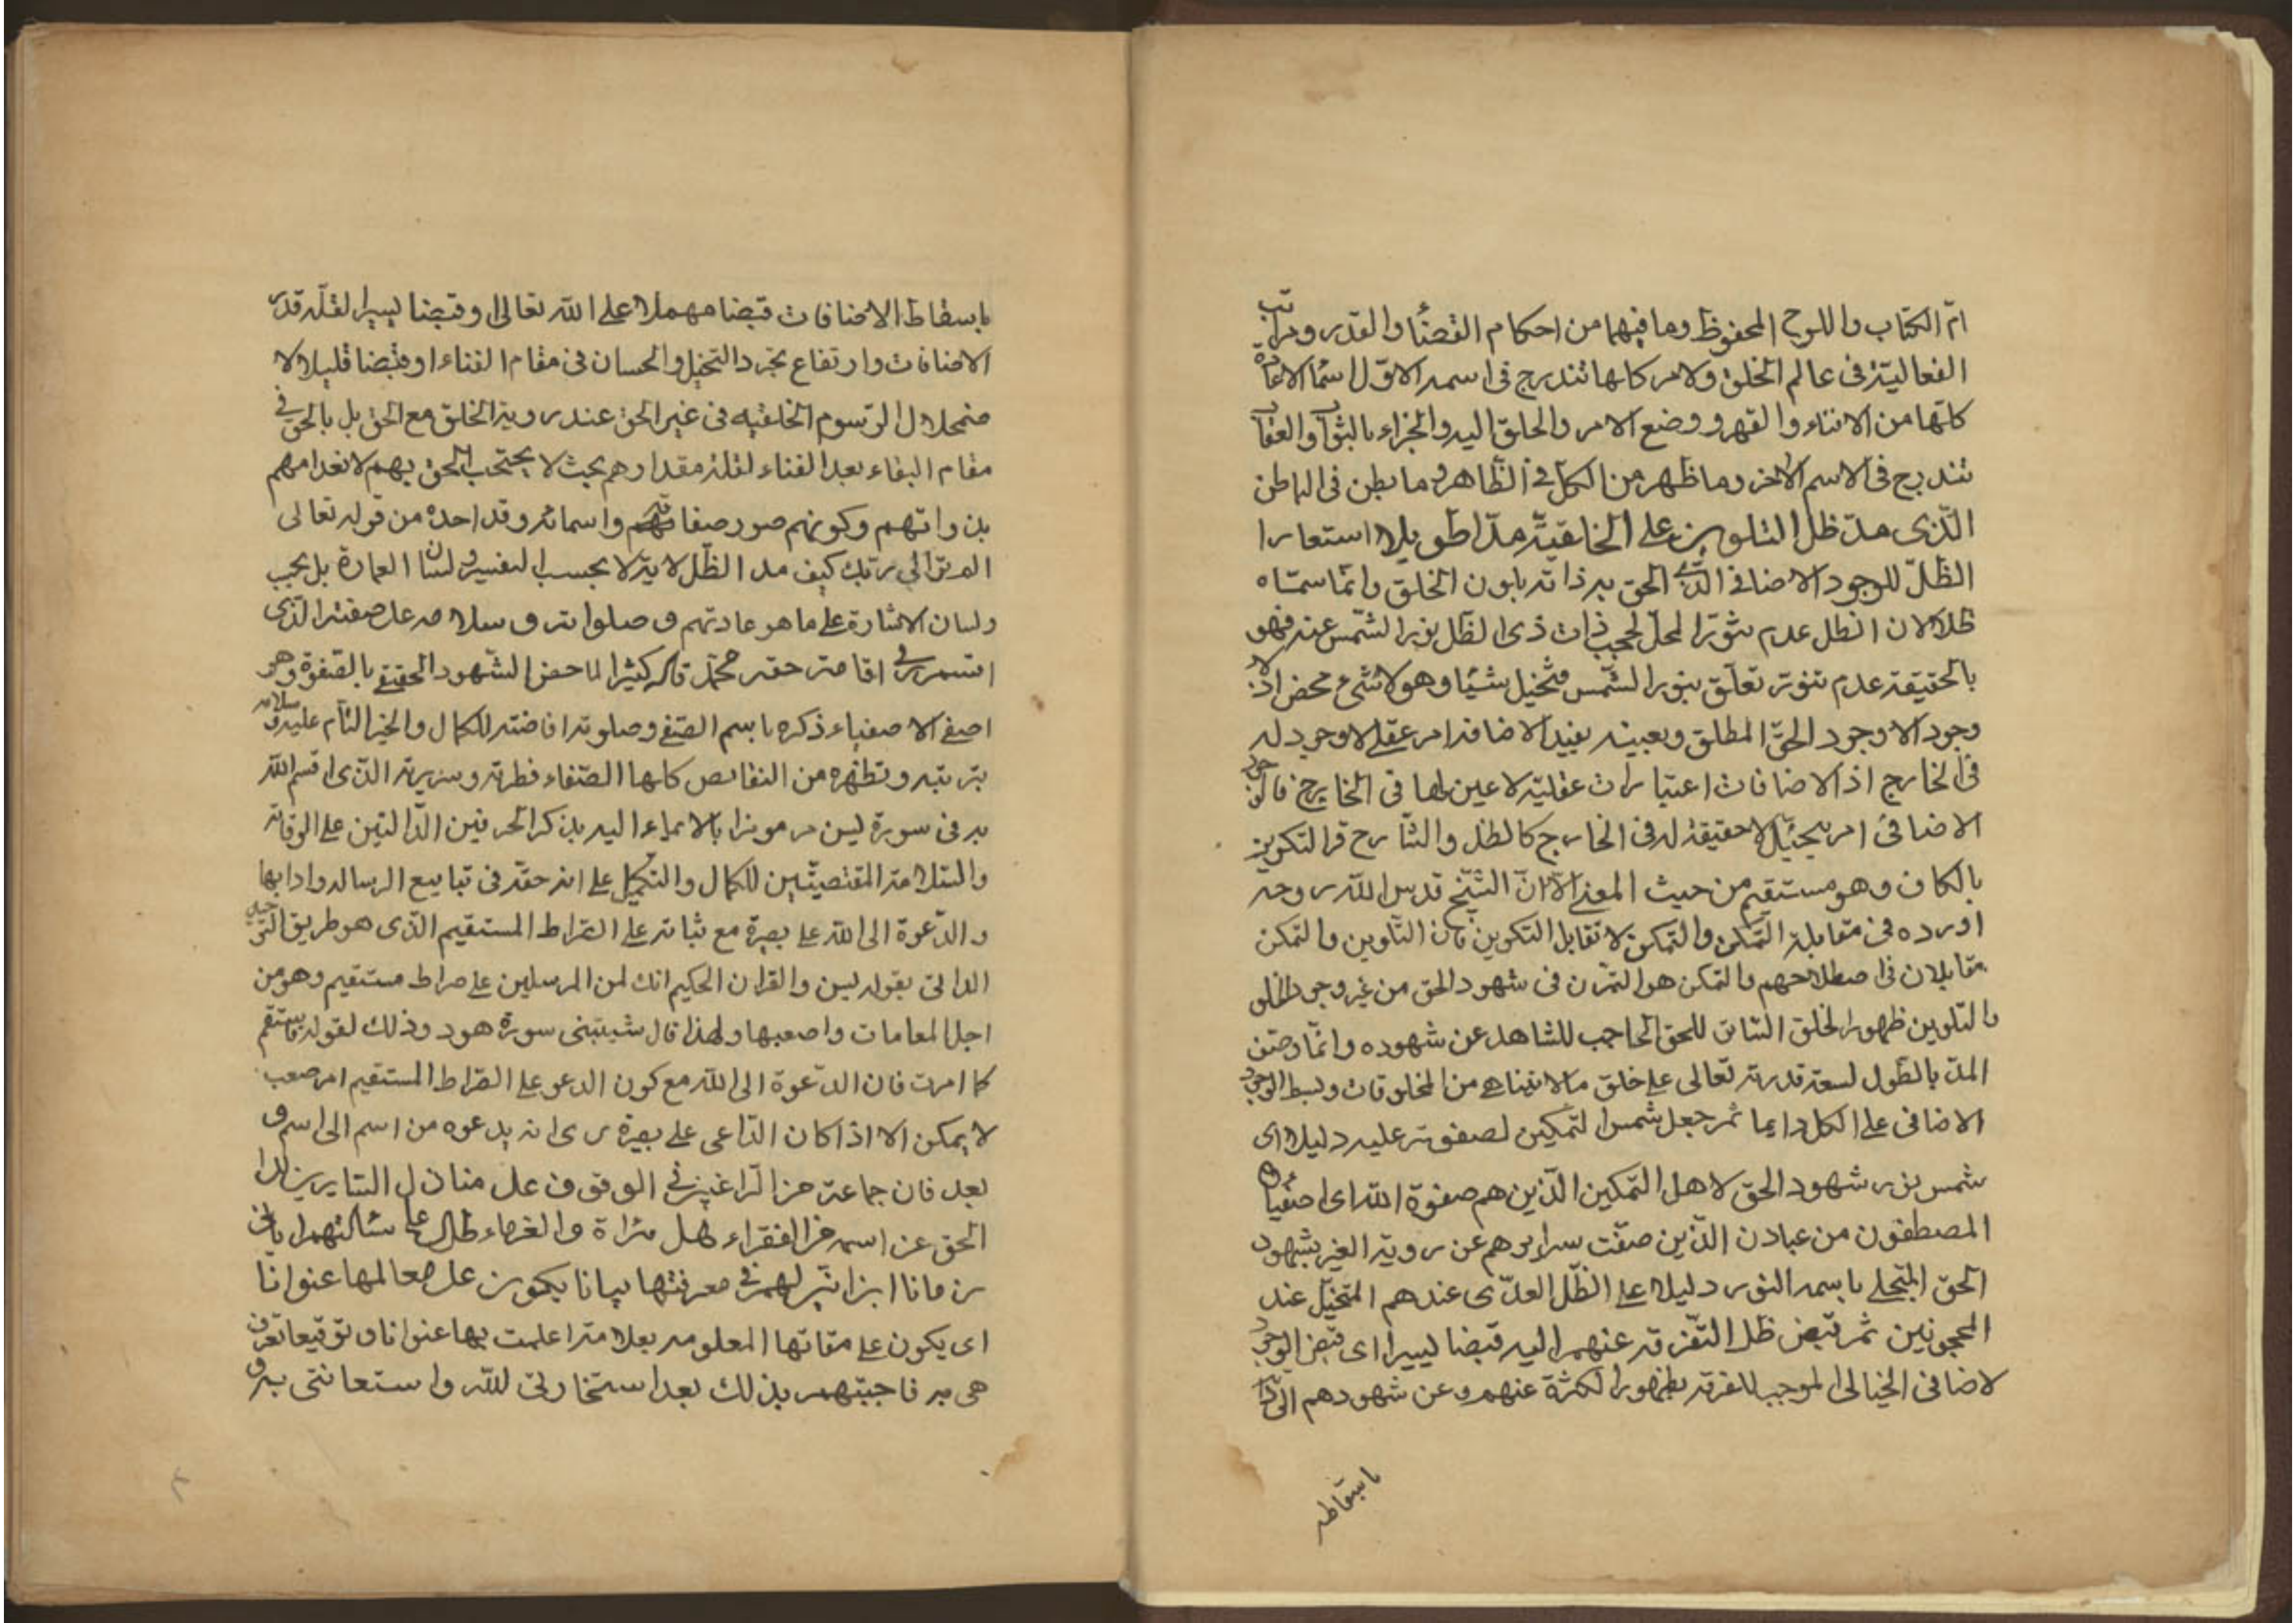 امّ الكتاب واللوح المحفوظ وما فيهما من احكام القضا والقدر ومراتب
الفعاليّة فى عالم الخلق والامر كلها تندرج فى اسمه الاوّل
كلّها من الافناء والقهر ووضع الامر والخلق اليه والجزاء بالثواب والعقاب
تندرج فى الاسم الاخر وما ظهر من الكل فى الظّاهر وما بطن فى الباطن
الّذى مدّ ظل التلوين على الخليقة مدّا طويلا استعارا
الظّلّ للوجود الاضافى الحق ذاته بلون الخلق وانّما سمّاه
ظلا لان الظل عدم تنوّر المحلّ لحجب ذات ذى الظل نور الشّمس عنه فهو
بالحقيقة عدم تنوّر تعلّق بنور الشّمس فتخيل شيئا وهو لا شىء محض اذ لا
وجود الا وجود الحقّ المطلق وتعينه بقيد الاضافة امر عقلى لا وجود له
فى الخارج اذ الاضافات اعتبارات عقليّة لا عين لها فى الخارج فالوجود
الاضافى امر تخيّل لا حقيقة له فى الخارج كالظل والشارح قرا التكوين
بالكاف وهو مستقيم من حيث المعنى الا انّ الشّيخ قدس اللّه روحه
اورده فى مقابلة التمكن والتمكن لا تقابل التكوين فان التّلوين والتمكن
مقابلان فى اصطلاحهم والتمكن هو التمرّن فى شهود الحق من غير وجود الخلق
والتّلوين ظهور الخلق السّاتر للحق الحاجب للشاهد عن شهوده وانّما وصف
المدّ بالطّول لسعة قدرته تعالى على خلق ما لا يتناهى من المخلوقات وبسط الوجود
الاضافى على الكل دايما ثم جعل شمس التمكين لصفوته عليه دليلا اى
شمس نور شهود الحق لاهل التمكين الّذين هم صفوة اللّه اى اصفياؤه
المصطفون من عباده الّذين صفّت سرايرهم عن روية الغير بشهود
الحق المتجلى باسمه النور دليلا على الظّل العدمى عندهم المتخيّل عند
المحجوبين ثم قبض ظل التّفرقة عنهم اليه قبضا يسيرا اى قبض الوجود
لاضافى الخيالى الموجب للفرقة بظهور الكثرة عنهم وعن شهودهم
باسقاط
باسقاط الاضافات قبضا مهملا على اللّه تعالى وقبضا يسيرا لقلّة قدر
الاضافات وارتفاع بمجرد التخيل والحسبان فى مقام الفناء او قبضا قليلا لا
ضمحلال الرّسوم الخلقيه فى غير الحق عند روية الخلق مع الحق بل بالحق فى
مقام البقاء بعد الفناء لقلة مقدارهم بحيث لا يحتجب الحق بهم لانعدامهم
بذواتهم وكونهم صور صفاته واسمائه وقد اخذه من قوله تعالى
الم تر الى ربك كيف مد الظّل الاية لا بحسب التفسير ولسان العبارة بل بحسب
ولسان الاشارة على ما هو عادتهم وصلواته وسلامه على صفيّه الّذى
اقسم به فى اقامة حقه محمّد واله كثيرا لما خص الشّهود الحقيقى بالصّفوة وهو
اصفى الاصفياء ذكره باسم الصّفى وصلوته افاضته للكمال والخير التّام عليه وسلامه
تربيته وتطهيره من النقايص كلها الصّفاء فطرته وسريرته الّذى اقسم اللّه
به فى سورة ليس مرموزا بالايماء اليه بذكر الحرفين الدّالّتين على الوقاية
والسّلامة المقتضيتين للكمال والتكميل على انه حقه فى تبليغ الرسالة وادابها
والدّعوة الى اللّه على بصيرة مع ثباته على الصّراط المستقيم الّذى هو طريق التوحيد
الذاتى بقوله يس والقران الحكيم انك لمن المرسلين على صراط مستقيم وهو من
اجل المقامات واصعبها ولهذا قال شيبتنى سورة هود وذلك لقوله فاستقم
كما امرت فان الدّعوة الى اللّه مع كون الدعو على الصّراط المستقيم امر صعب
لا يمكن الا اذا كان الدّاعى على بصيرة يرى انه يدعوه من اسم الى اسم و
بعد فان جماعة من الرّاغبين فى الوقوف على منازل السّايرين الى
الحق عن اسمه من الفقراء اهل هراة والغرباء طال على مسألتهم ايّاى
زمانا ان ابيّن لهم فى معرفتها بيانا يكون على معالمها عنوانا
اى يكون على مقاتها المعلومه بعلامة اعلمت بها عنوانا وتوقيعا تعرف
هى به فاجبتهم بذلك بعد استخارتى للّه واستعانتى به و